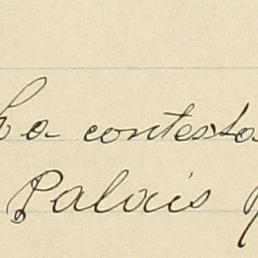 La contesta
Palais